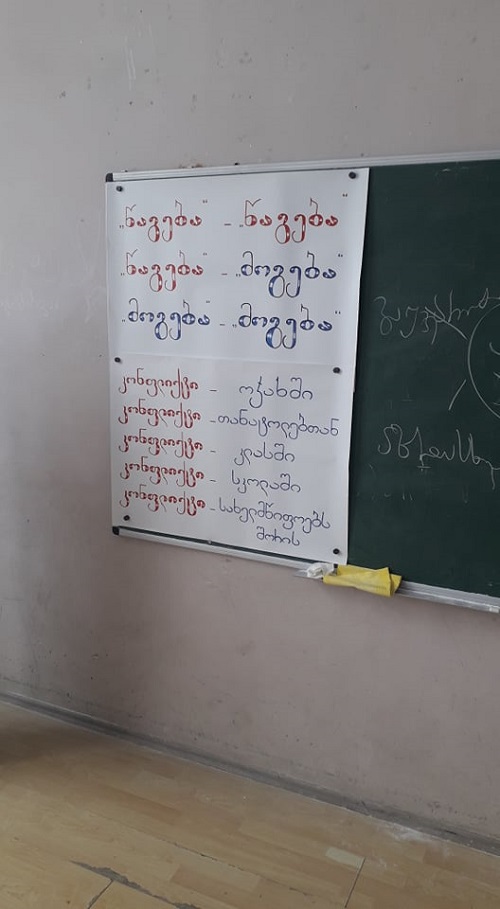 „წაგება“ – „წაგება“
„წაგება“ – „მოგება“
„მოგება“ – „მოგება“
კონფლიქტი – ოჯახში
კონფლიქტი – თანატოლებთან
კონფლიქტი – კლასში
კონფლიქტი – სკოლაში
კონფლიქტი – სახელმწიფოებს
შორის